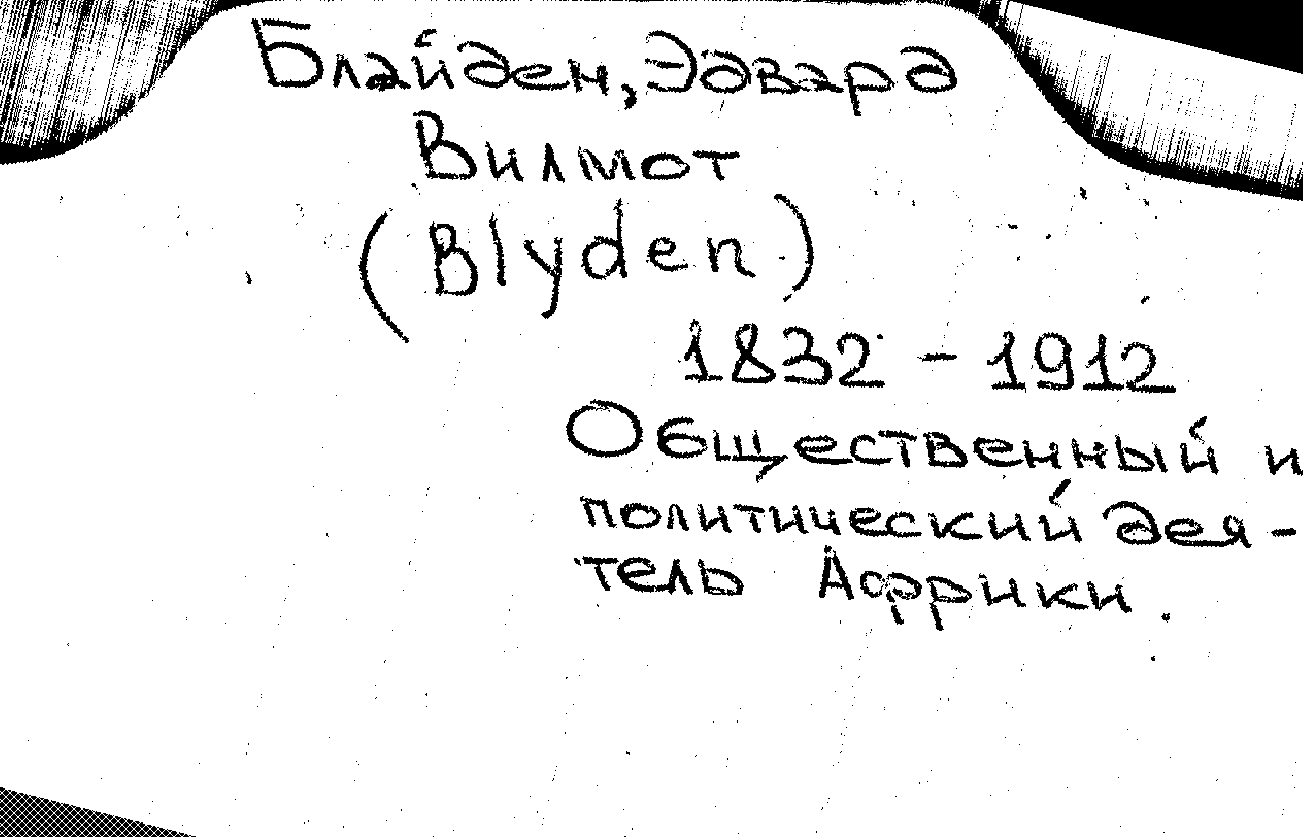 Блайден, Эдвард
Вилмот
(Blyden)
1832 - 1912
Общественный и
политический дея-
тель Африки.